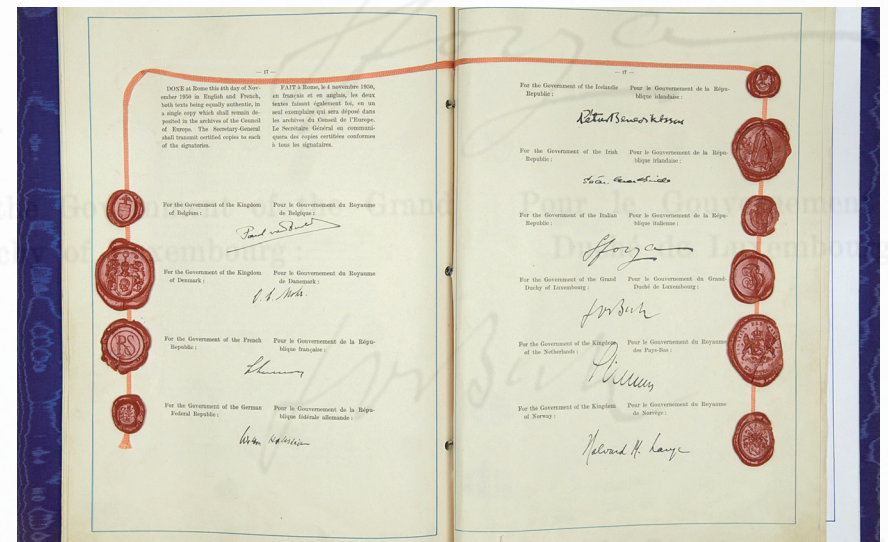 — 17 —
DONE at Rome this 4th day of Nov-
ember 1950 in English and French,
both texts being equally authentic, in
a single copy which shall remain de-
posited in the archives of the Council
of Europe. The Secretary-General
shall transmit certified copies to each
of the signatories.
FAIT à Rome, le 4 novembre 1950,
en français et en anglais, les deux
textes faisant également foi, en un
seul exemplaire qui sera déposé dans
les archives du Conseil de l'Europe.
Le Secrétaire Général en communi-
quera des copies certifiées conformes
à tous les signataires.
For the Government of the Kingdom
of Belgium :
Pour le Gouvernement du Royaume
de Belgique :
For the Government of the Kingdom
of Denmark :
Pour le Gouvernement du Royaume
de Danemark :
O. C. Mohr.
For the Government of the French
Republic :
Pour le Gouvernement de la Répu-
blique française :
RS
For the Government of the German
Federal Republic :
Pour le Gouvernement de la Répu-
blique fédérale allemande :
— 17 —
For the Government of the Icelandic
Republic :
Pour le Gouvernement de la Répu-
blique islandaise :
Pétur Benediktsson
For the Government of the Irish
Republic :
Pour le Gouvernement de la Répu-
blique irlandaise :
For the Government of the Italian
Republic :
Pour le Gouvernement de la Répu-
blique italienne :
Sforza
For the Government of the Grand
Duchy of Luxembourg :
Pour le Gouvernement du Grand-
Duché de Luxembourg :
Jos Bech
For the Government of the Kingdom
of the Netherlands :
Pour le Gouvernement du Royaume
des Pays-Bas :
For the Government of the Kingdom
of Norway :
Pour le Gouvernement du Royaume
de Norvège :
Halvard M. Lange